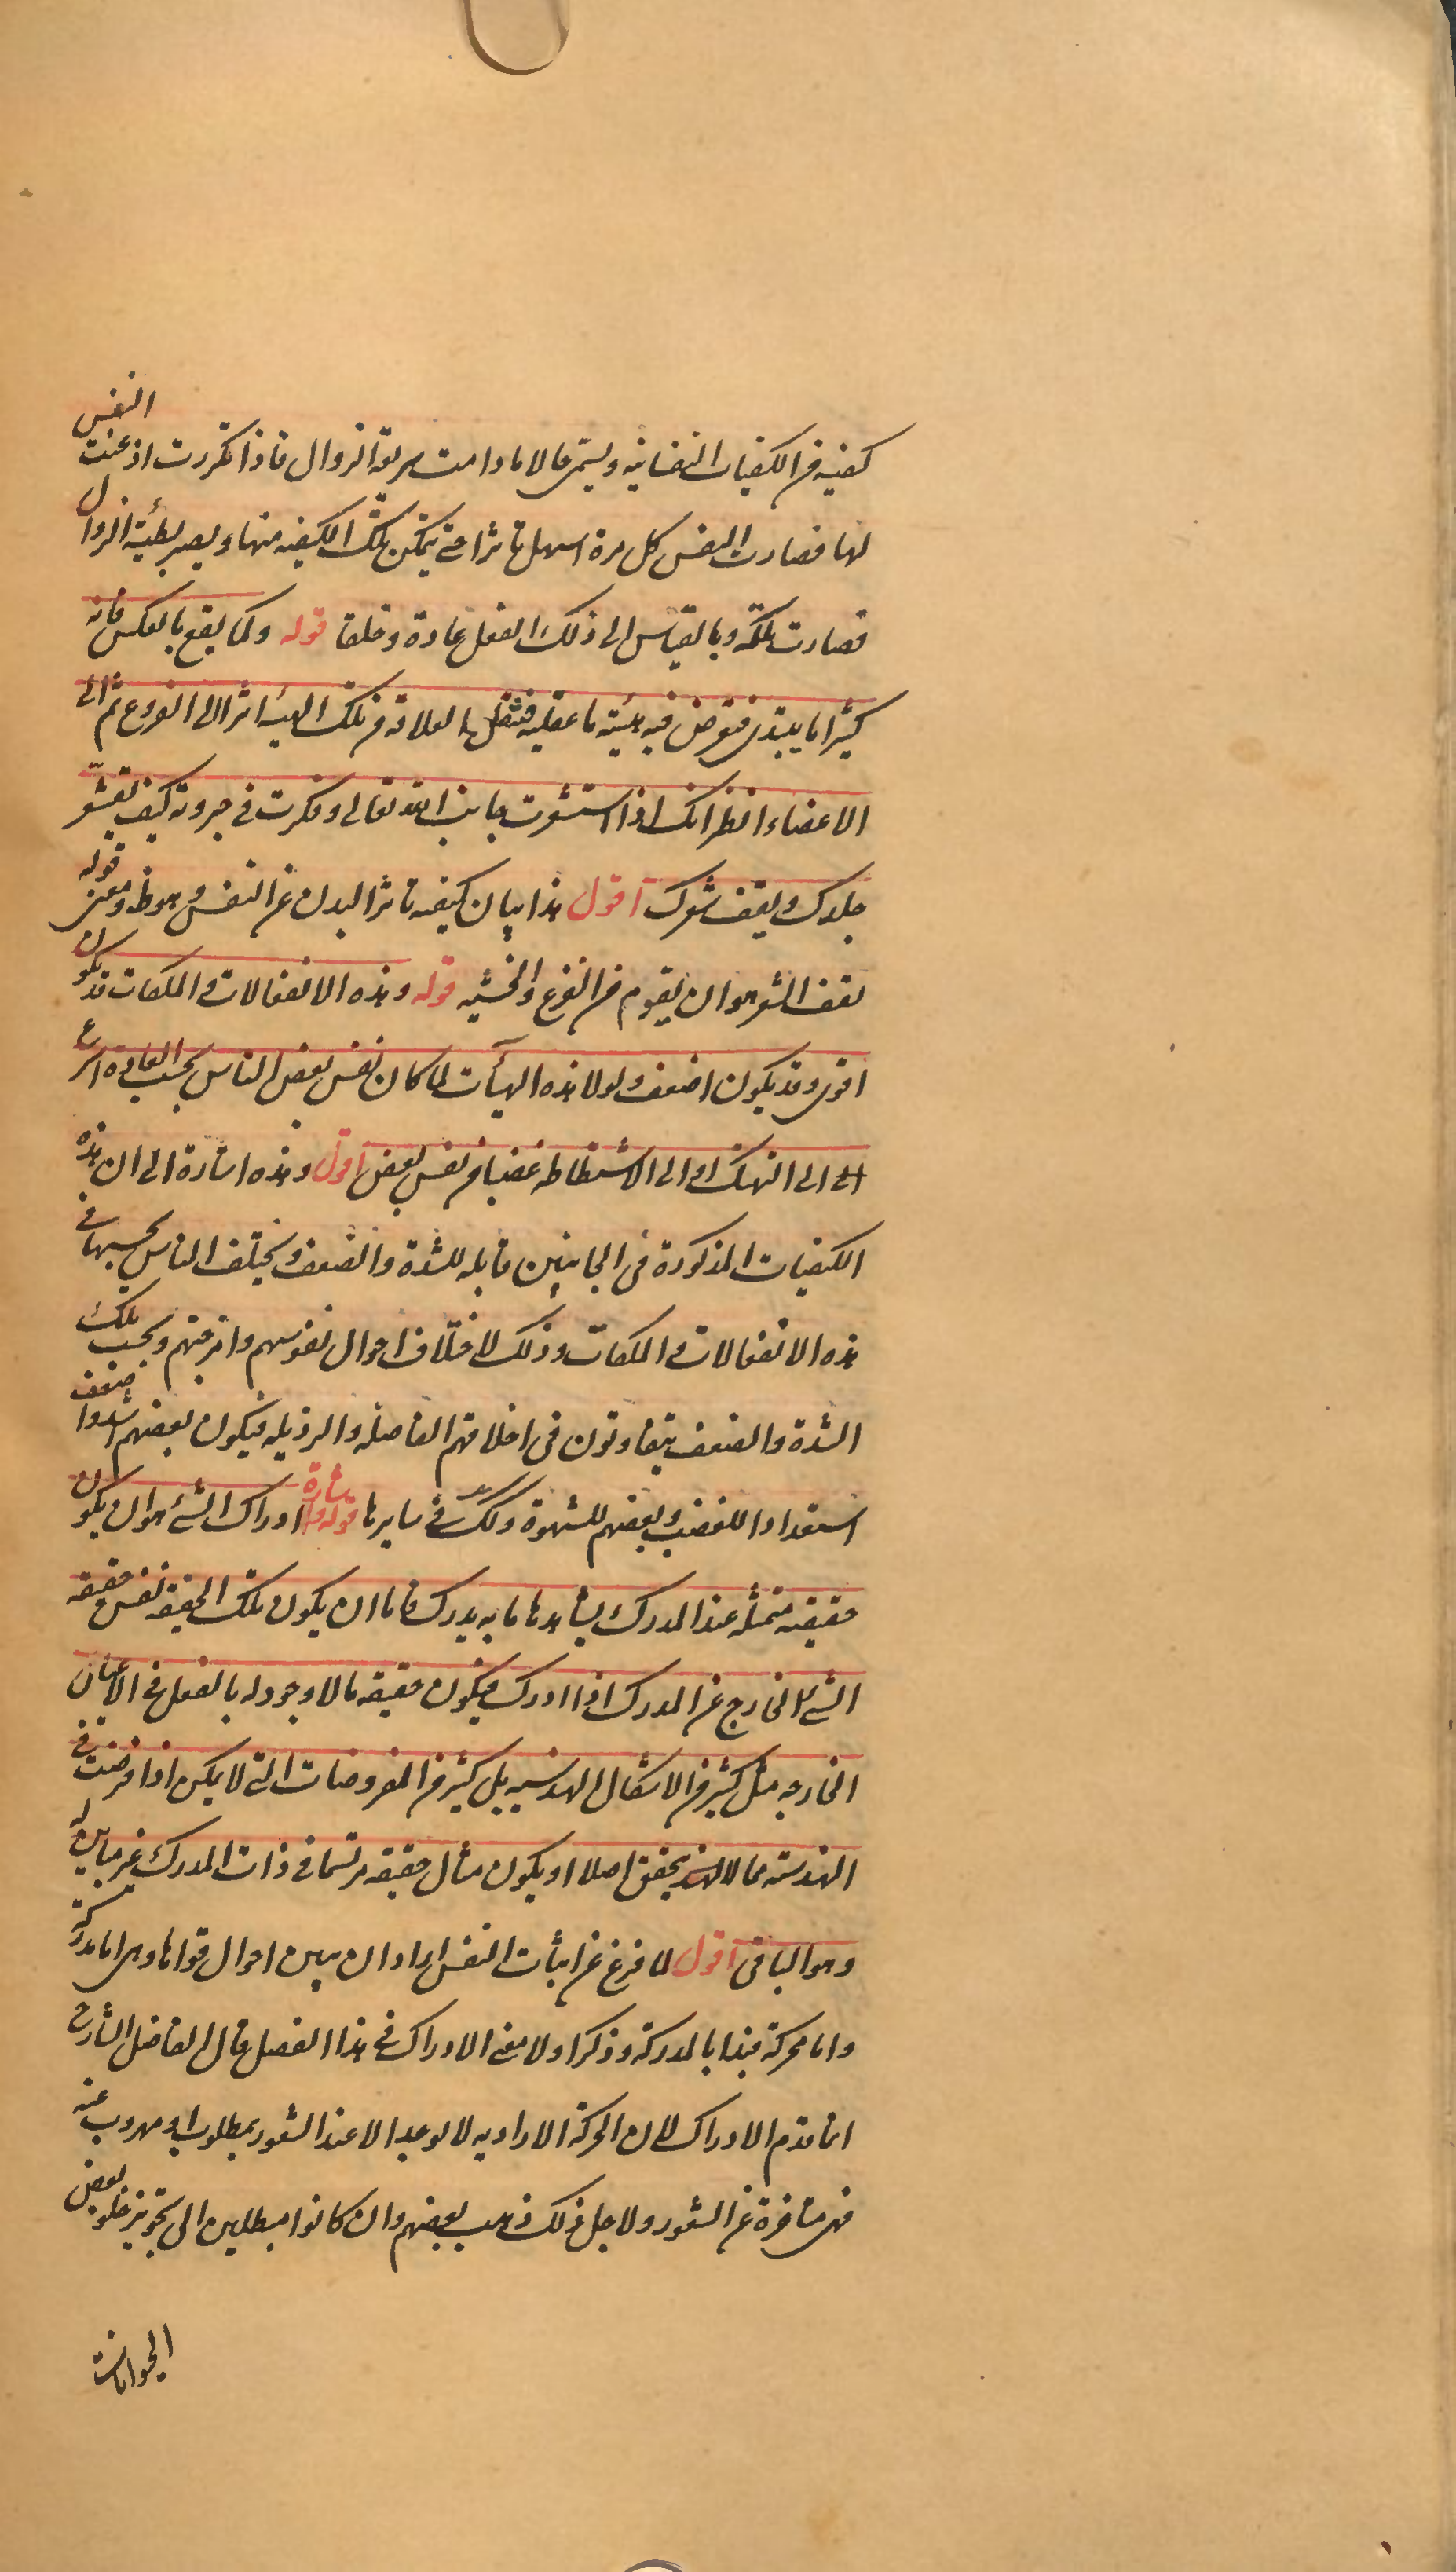 كيفية من الكيفيات النفسانية ويسمى حالا مادامت سريعة الزوال فاذا تكررت اذعنت النفس
لها فصارت النفس كل مرة اسهل تاثرا حتى يتمكن تلك الكيفية منها ويصير بطيئة الزوال
فصارت ملكة وبالقياس الى ذلك الفعل عادة وخلقا قوله وكما يقع بالعكس فانه
كثيرا ما يبتدى فتعرض فيه هيئة ما عقلية فتنقل العلاقة من تلك الهيئة اثرا الى الفروع ثم الى
الاعضاء انظر انك اذا استشعرت جانب الله تعالى وفكرت فى جبروته كيف يقشعر
جلدك ويقف شعرك اقول هذا بيان كيفية تاثر البدن عن النفس وهو ظ ومعنى قوله
يقف الشعر هو ان يقوم من الفزع والخشية قوله وهذه الانفعالات والملكات قد يكون
اقوى وقد يكون اضعف ولولا هذه الهيآت لما كان نفس بعض الناس بحسب العادة اسرع
الى التهتك او الى الاستشاطة غضبا من نفس بعض اقول وهذه اشارة الى ان هذه
الكيفيات المذكورة فى الجانبين قابلة للشدة والضعف ويختلف الناس بحسبها فى
هذه الانفعالات والملكات وذلك لاختلاف احوال نفوسهم وامزجتهم وبحسب تلك
الشدة والضعف يتفاوتون فى اخلاقهم الفاضلة والرذيلة فيكون بعضهم اشد او اضعف
استعدادا للغضب وبعضهم للشهوة وكذلك فى سايرها قوله اشارة ادراك الشئ هو ان يكون
حقيقته متمثلة عند المدرك يشاهدها ما به يدرك فاما ان يكون تلك الحقيقة نفس حقيقة
الشئ الخارج عن المدرك اذا ادرك فيكون حقيقة ما لا وجود له بالفعل فى الاعيان
الخارجة مثل كثير من الاشكال الهندسية بل كثير من المفروضات التى لا يمكن اذا فرضت فى
الهندسة مما لا يتحقق اصلا او يكون مثال حقيقته مرتسما فى ذات المدرك غير مباين له
وهو الباقى اقول لما فرغ عن اثبات النفس اراد ان يبين احوال قواها وهى اما مدركة
واما محركة فبدا بالمدركة وذكر اولا معنى الادراك فى هذا الفصل قال الفاضل الشارح
انما قدم الادراك لان الحركة الارادية لا توجد الا عند الشعور بمطلوب او مهروب عنه
فهى متاخرة عن الشعور ولاجل ذلك ذهب بعضهم وان كانوا مبطلين الى تجويز خلو بعض
الحيوانات